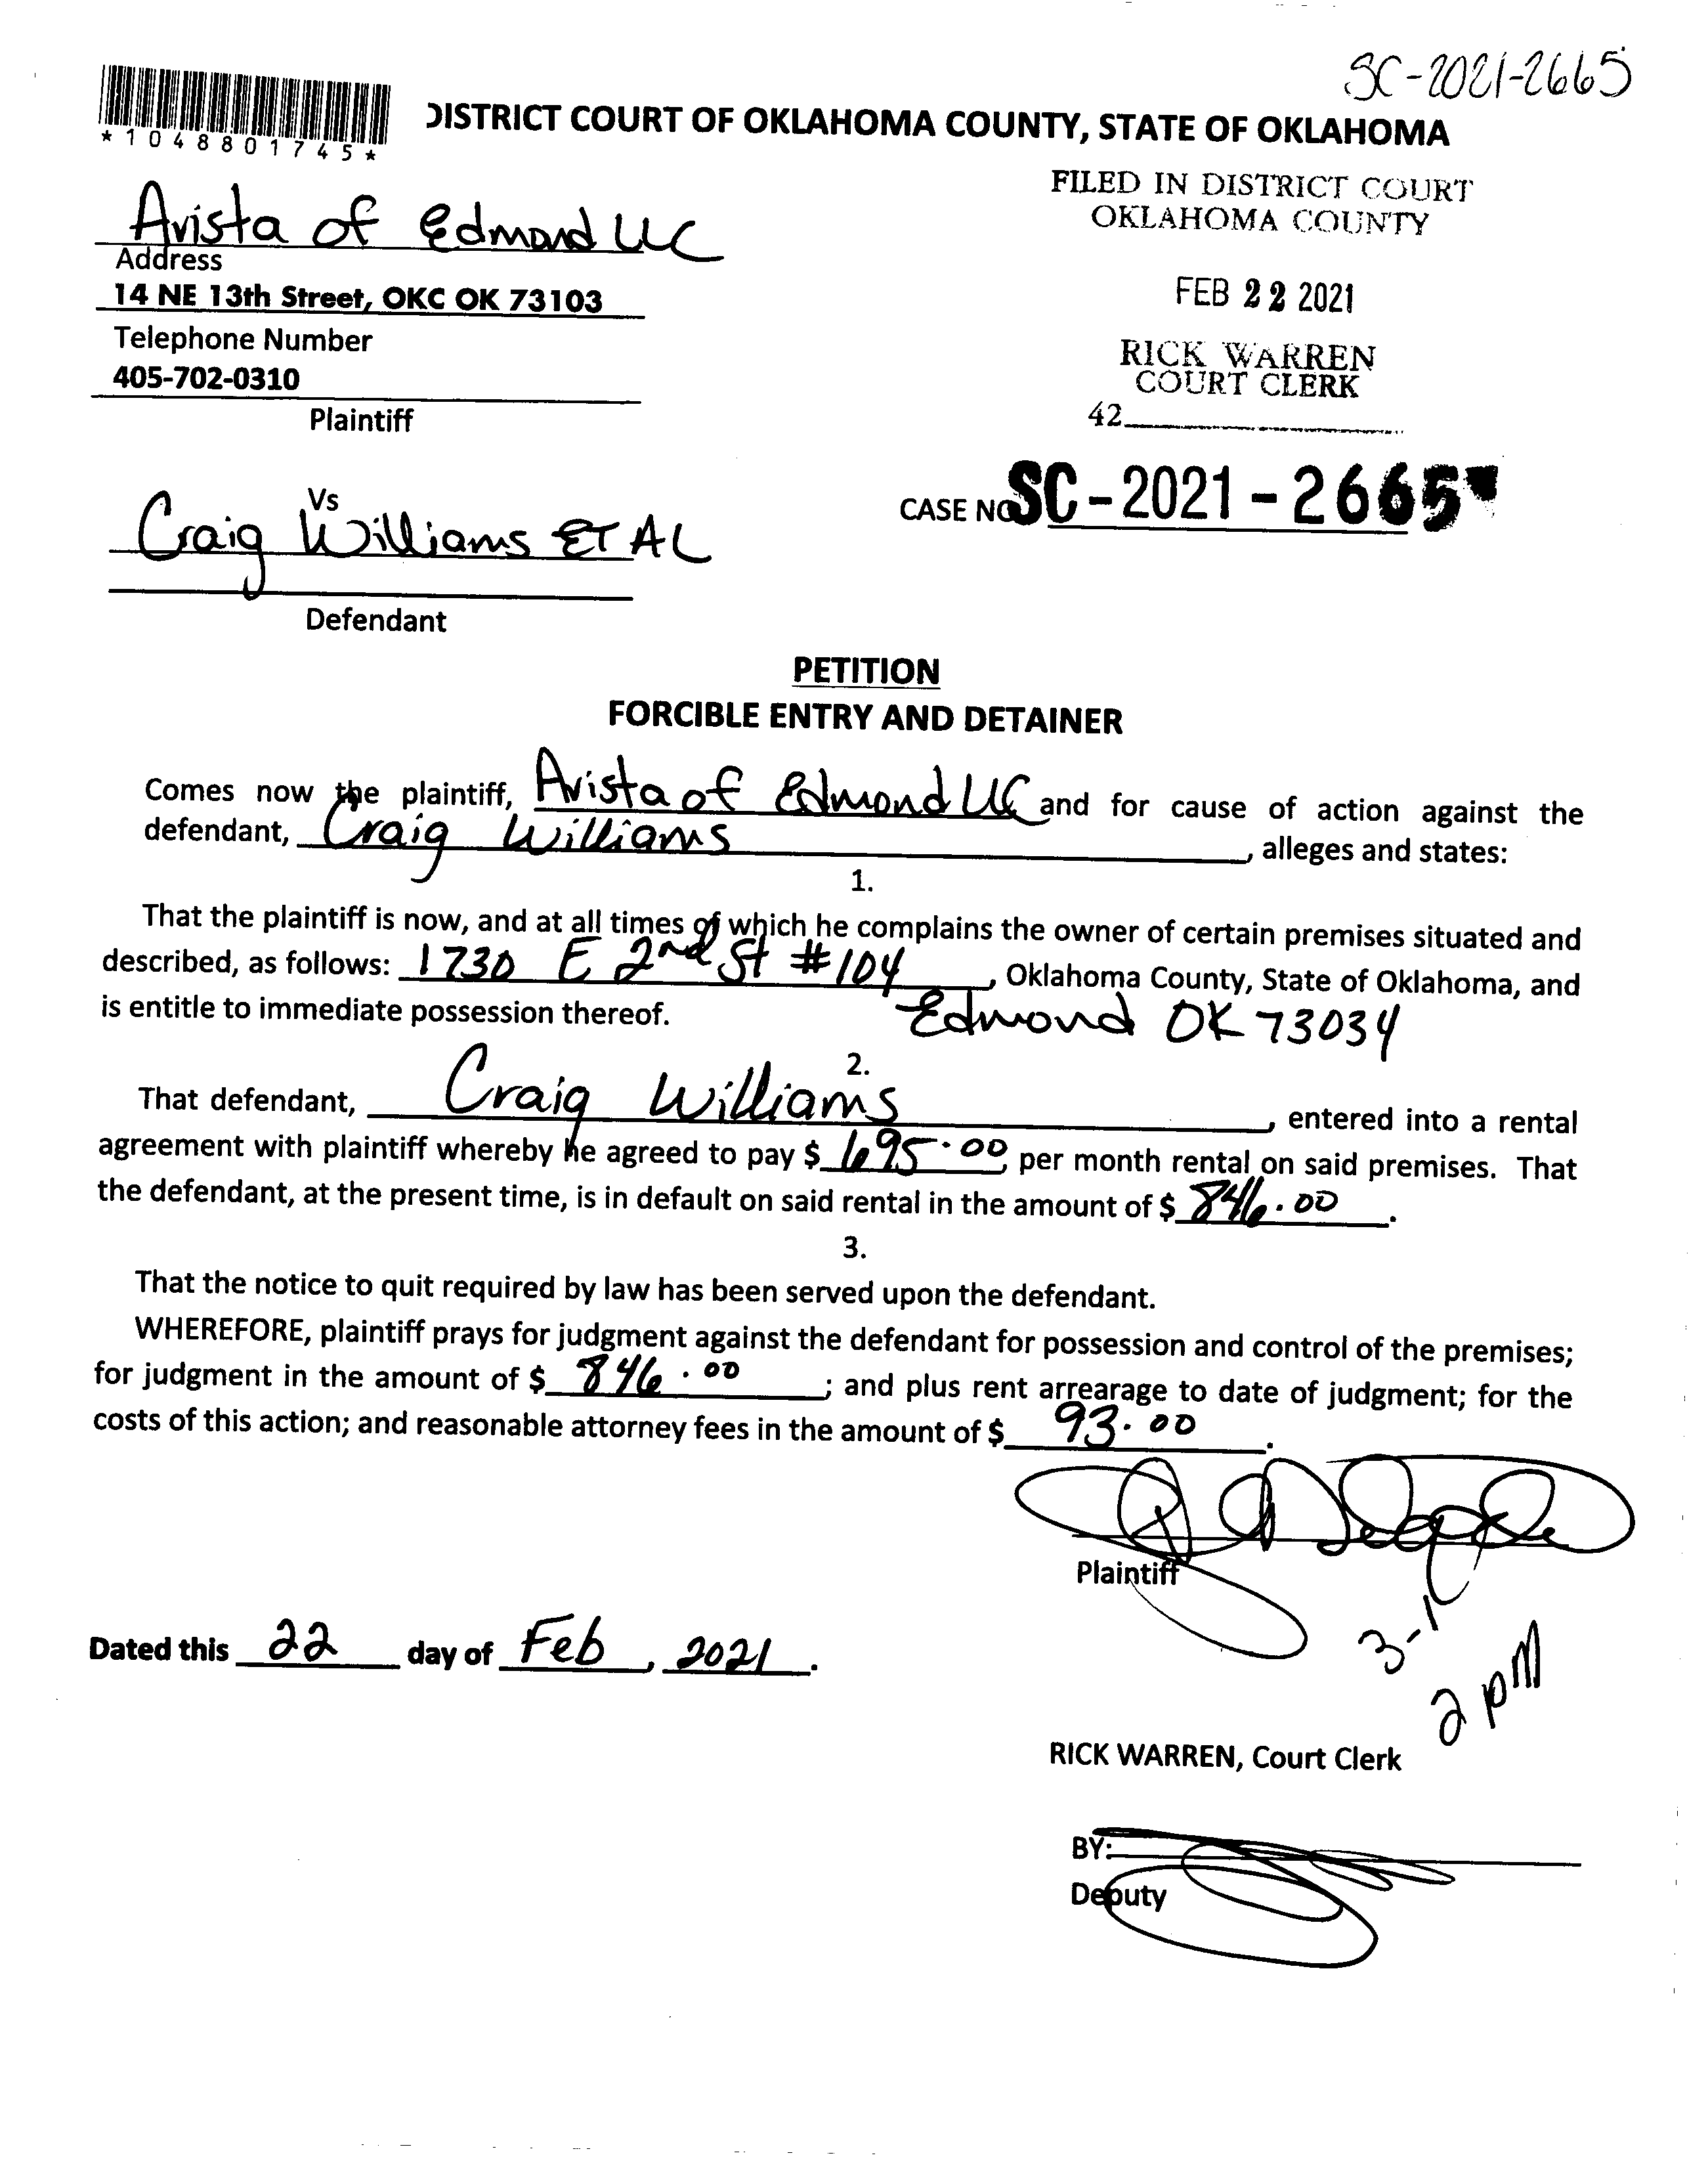 SC-2021-2665
*1048801745*
DISTRICT COURT OF OKLAHOMA COUNTY, STATE OF OKLAHOMA
FILED IN DISTRICT COURT
OKLAHOMA COUNTY
FEB 22 2021
RICK WARREN
COURT CLERK
42
Avista of Edmond LLC
Address
14 NE 13th Street, OKC OK 73103
Telephone Number
405-702-0310
Plaintiff
CASE NO SC-2021-2665
Vs
Craig Williams ET AL
Defendant
PETITION
FORCIBLE ENTRY AND DETAINER
Comes now the plaintiff, Avista of Edmond LLC and for cause of action against the
defendant, Craig Williams, alleges and states:
1.
That the plaintiff is now, and at all times of which he complains the owner of certain premises situated and
described, as follows: 1730 E 2nd St #104, Oklahoma County, State of Oklahoma, and
is entitle to immediate possession thereof. Edmond OK 73034
2.
That defendant, Craig Williams, entered into a rental
agreement with plaintiff whereby he agreed to pay $ 695.00 per month rental on said premises. That
the defendant, at the present time, is in default on said rental in the amount of $ 846.00.
3.
That the notice to quit required by law has been served upon the defendant.
WHEREFORE, plaintiff prays for judgment against the defendant for possession and control of the premises;
for judgment in the amount of $ 846.00; and plus rent arrearage to date of judgment; for the
costs of this action; and reasonable attorney fees in the amount of $ 93.00.
Plaintiff
Dated this 22 day of Feb, 2021.
2 pm
RICK WARREN, Court Clerk
BY:
Deputy